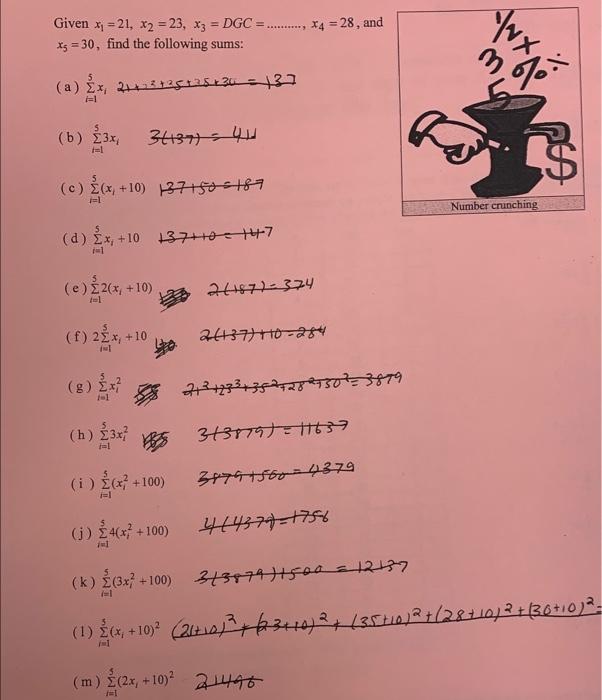 Given x₁ = 21, x₂ = 23, x₃ = DGC = .........., x₄ = 28, and
x₅ = 30, find the following sums:
½
3 +
% ÷
5
$
Number crunching
(a) ∑ᵢ₌₁⁵ xᵢ
(b) ∑ᵢ₌₁⁵ 3xᵢ 3(137) =
(c) ∑ᵢ₌₁⁵ (xᵢ + 10) 137+50 = 187
(d) ∑ᵢ₌₁⁵ xᵢ + 10 137+10 = 147
(e) ∑ᵢ₌₁⁵ 2(xᵢ + 10) 2(187) = 374
(f) 2∑ᵢ₌₁⁵ xᵢ + 10 2(137)+10 = 284
(g) ∑ᵢ₌₁⁵ xᵢ² 21²+23²+35²+28²+30² = 3879
(h) ∑ᵢ₌₁⁵ 3xᵢ² 3(3879) = 11637
(i) ∑ᵢ₌₁⁵ (xᵢ² + 100) 3879+500 = 4379
(j) ∑ᵢ₌₁⁵ 4(xᵢ² + 100) 4(4379) = 1756
(k) ∑ᵢ₌₁⁵ (3xᵢ² + 100) 3(3879)+500 = 12137
(l) ∑ᵢ₌₁⁵ (xᵢ + 10)² (21+10)² + (23+10)² + (35+10)² + (28+10)² + (30+10)² =
(m) ∑ᵢ₌₁⁵ (2xᵢ + 10)² 21496